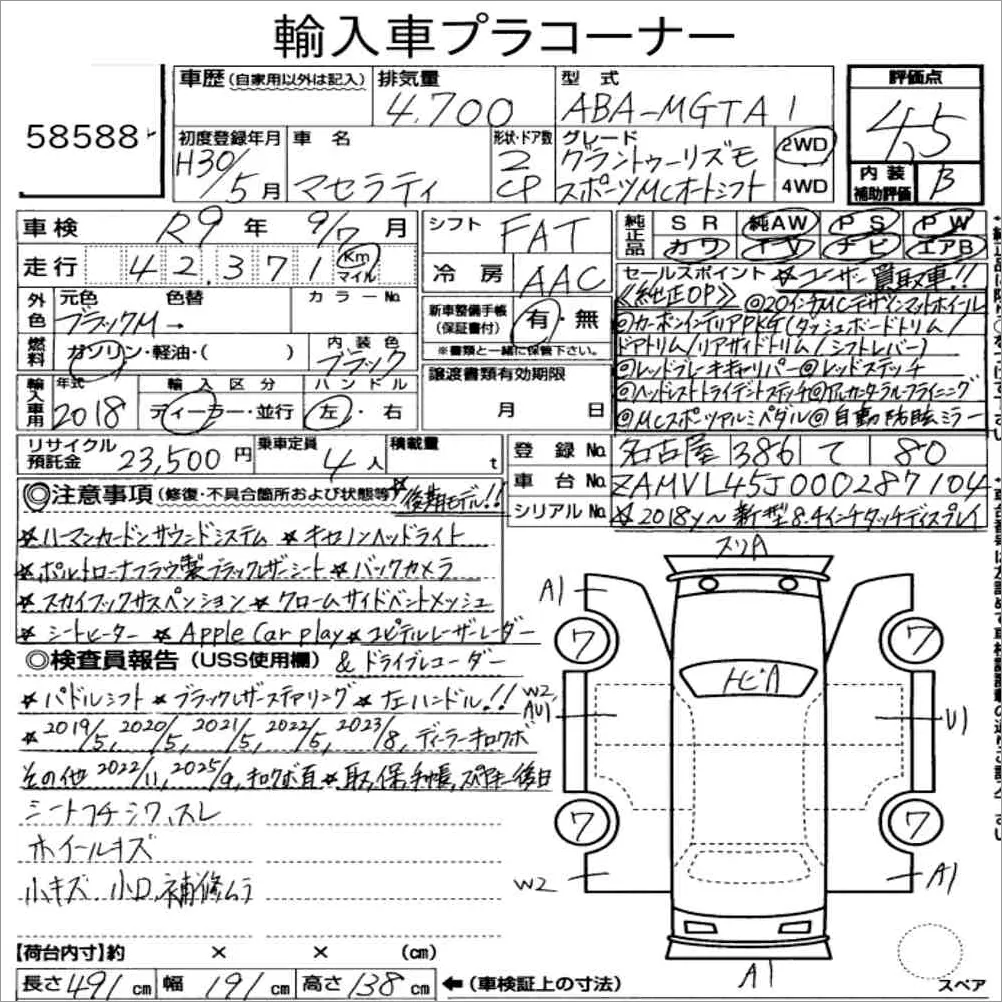 輸入車プラコーナー
58588
車歴(自家用以外は記入) 排気量 4.700 型式 ABA-MGTA1 評価点 4.5
初度登録年月 H30/5月 車名 マセラティ 形状・ドア数 2 CP グレード グラントゥーリズモ スポーツMCオートシフト 2WD 4WD 内装補助評価 B
車検 R9年 9/7月 シフト FAT 純正品 SR 純AW PS PW
カワ TV ナビ エアB
走行 42.371 Km マイル 冷房 AAC
セールスポイント ☆ユーザー買取車!!
外色 元色 色替 カラーNo. ブラックM→
新車整備手帳(保証書付) 有・無
※書類と一緒に保管下さい。
《純正OP》@20インチMCデザインマットホイール
@カーボンインテリアPKG(ダッシュボードトリム/
ドアトリム/リアサイドトリム/シフトレバー)
@レッドブレーキキャリパー@レッドステッチ
@ヘッドレストトライデントステッチ@アルカンタラルーフライニング
@MCスポーツアルミペダル@自動防眩ミラー
燃料 ガソリン・軽油・( ) 内装色 ブラック
譲渡書類有効期限 月 日
輸入車用 年式 2018 輸入区分 ディーラー・並行 ハンドル 左・右
リサイクル預託金 23,500円 乗車定員 4人 積載量 t
登録No. 名古屋 386 て 80
車台No. ZAMVL45J000287104
シリアルNo. ☆2018y〜新型8.4インチタッチディスプレイ
◎注意事項(修復・不具合箇所および状態等) ☆後期モデル!!
☆ハーマンカードンサウンドシステム ☆キセノンヘッドライト
☆ポルトローナフラウ製ブラックレザーシート ☆バックカメラ
☆スカイフックサスペンション ☆クロームサイドベントメッシュ
☆シートヒーター ☆Apple Car play ☆ユピテルレーザーレーダー
◎検査員報告(USS使用欄) & ドライブレコーダー
☆パドルシフト ☆ブラックレザーステアリング ☆左ハンドル!!
☆2019/5,2020/5,2021/5,2022/5,2023/8,ディーラーキロクボ
その他2022/11,2025/9,キロクボ有 ☆取,保,手帳,スペアキー後日
シートフチシワ、スレ
ホイールキズ
小キズ、小凹、補修ムラ
スリA
A1
7
7
トビA
W2
AU1
U1
7
7
W2
A1
A1
スペア
【荷台内寸】約 × × (cm)
長さ491cm 幅191cm 高さ138cm ←(車検証上の寸法)